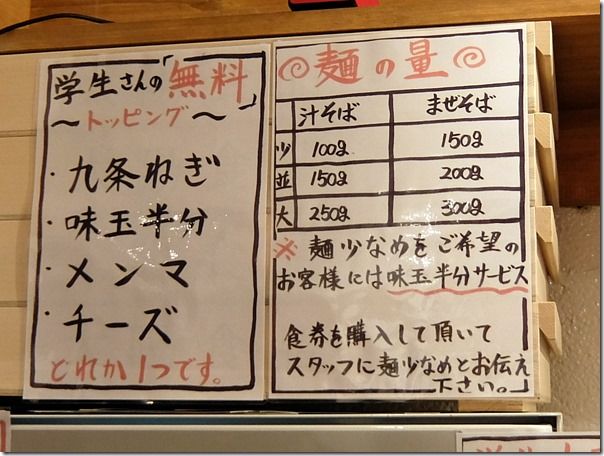 学生さんの「無料」
～トッピング～
・九条ねぎ
・味玉半分
・メンマ
・チーズ
どれか1つです。
麺の量
汁そば まぜそば
少 100g 150g
並 150g 200g
大 250g 300g
※麺少なめをご希望の
お客様には味玉半分サービス
食券を購入して頂いて
スタッフに麺少なめとお伝え
下さい。